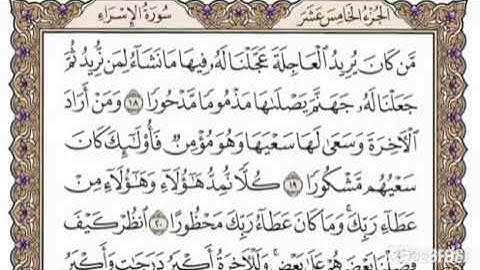 الجزء الخامس عشر
سورة الإسراء
مَّن كَانَ يُرِيدُ ٱلْعَاجِلَةَ عَجَّلْنَا لَهُۥ فِيهَا مَا نَشَآءُ لِمَن نُّرِيدُ ثُمَّ
جَعَلْنَا لَهُۥ جَهَنَّمَ يَصْلَىٰهَا مَذْمُومًا مَّدْحُورًا ١٨ وَمَنْ أَرَادَ
ٱلْءَاخِرَةَ وَسَعَىٰ لَهَا سَعْيَهَا وَهُوَ مُؤْمِنٌ فَأُو۟لَٰٓئِكَ كَانَ
سَعْيُهُم مَّشْكُورًا ١٩ كُلًّا نُّمِدُّ هَٰٓؤُلَآءِ وَهَٰٓؤُلَآءِ مِنْ
عَطَآءِ رَبِّكَ ۚ وَمَا كَانَ عَطَآءُ رَبِّكَ مَحْظُورًا ٢٠ ٱنظُرْ كَيْفَ
فَضَّلْنَا بَعْضَهُمْ عَلَىٰ بَعْضٍ ۚ وَلَلْءَاخِرَةُ أَكْبَرُ دَرَجَٰتٍ وَأَكْبَرُ